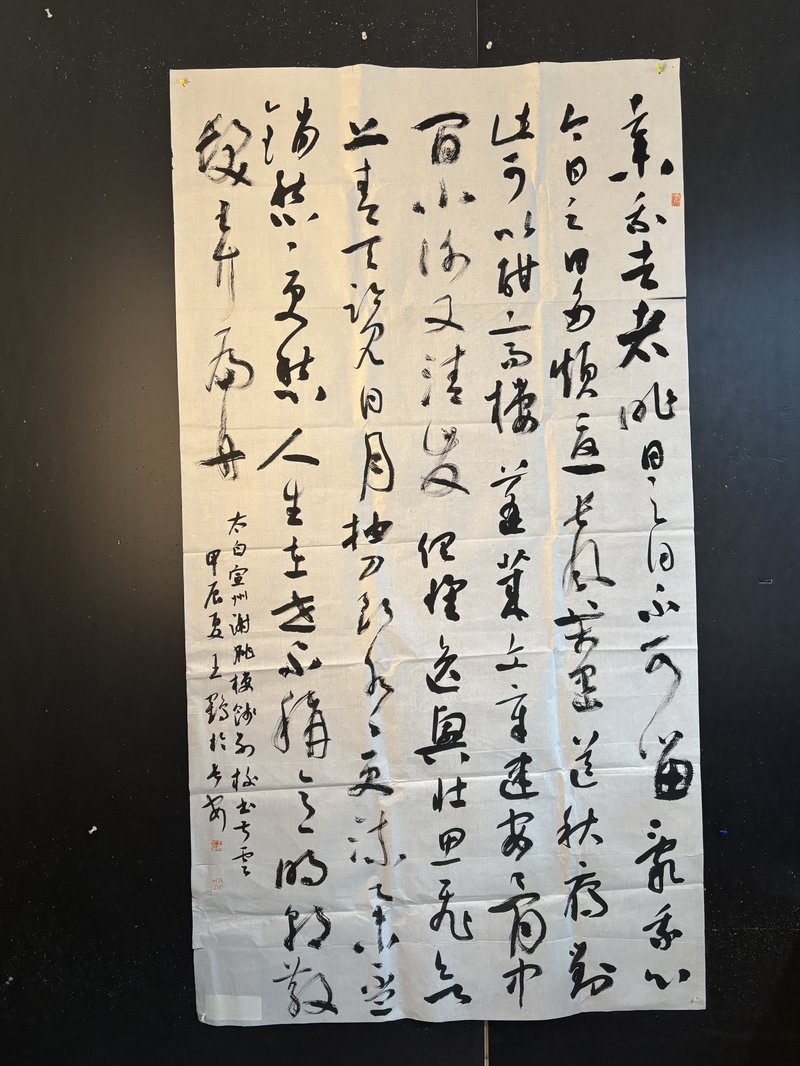 棄我去者昨日之日不可留亂我心
今日之日多煩憂長風萬里送秋雁對
此可以酣高樓蓬萊文章建安骨中
間小謝又清發俱懷逸興壯思飛欲
上青天覽日月抽刀斷水水更流舉杯
銷愁愁更愁人生在世不稱意明朝散
髮弄扁舟
太白宣州謝朓樓餞別校書叔雲
甲辰夏王鶴於長安